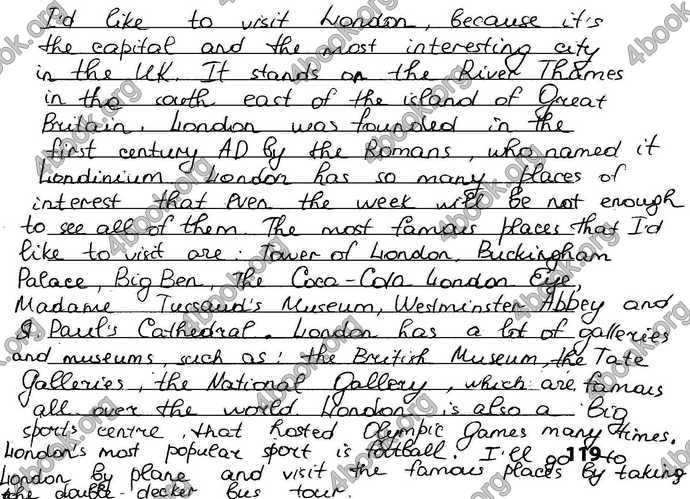 I'd like to visit London, because it's
the capital and the most interesting city
in the UK. It stands on the River Thames
in the south east of the island of Great
Britain. London was founded in the
first century AD by the Romans, who named it
Londinium. London has so many places of
interest that even the week will be not enough
to see all of them. The most famous places that I'd
like to visit are: Tower of London, Buckingham
Palace, Big Ben, The Coca-Cola London Eye,
Madame Tussaud's Museum, Westminster Abbey and
St Paul's Cathedral. London has a lot of galleries
and museums, such as: the British Museum, the Tate
Galleries, the National Gallery, which are famous
all over the world. London is also a big
sports centre, that hosted Olympic Games many times.
London's most popular sport is football. I'll go to
119
London by plane and visit the famous places by taking
the double-decker bus tour.
4book.org